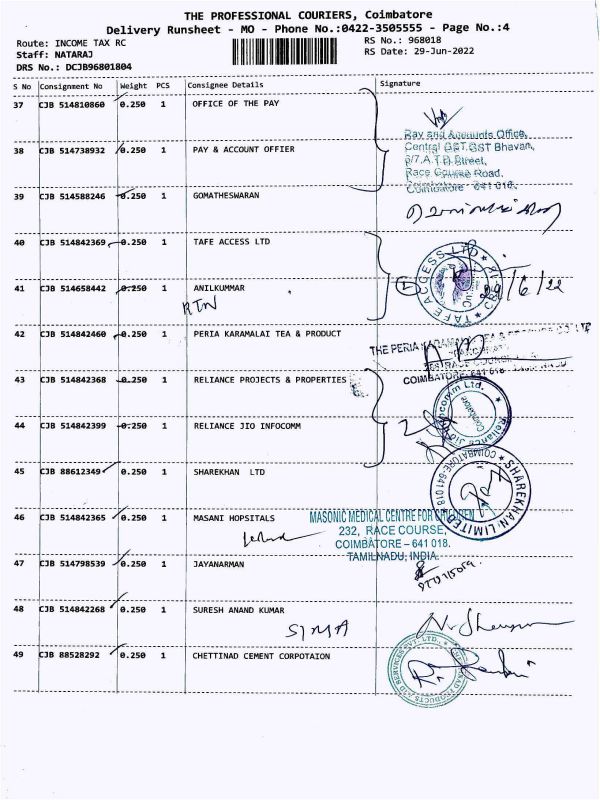 THE PROFESSIONAL COURIERS, Coimbatore
Delivery Runsheet - MO - Phone No.:0422-3505555 - Page No.:4
Route: INCOME TAX RC
RS No.: 968018
Staff: NATARAJ
RS Date: 29-Jun-2022
DRS No.: DCJB96801804
S No Consignment No Weight PCS Consignee Details Signature
37 CJB 514810860 0.250 1 OFFICE OF THE PAY
Pay and Accounts Office,
38 CJB 514738932 0.250 1 PAY & ACCOUNT OFFIER
Central GST, GST Bhavan,
6/7, A.T.D. Street,
Race Course Road,
Coimbatore - 641 018.
39 CJB 514588246 0.250 1 GOMATHESWARAN
40 CJB 514842369 0.250 1 TAFE ACCESS LTD
TAFE ACCESS LTD
41 CJB 514658442 0.250 1 ANILKUMAR
29/6/22
RTN
42 CJB 514842460 0.250 1 PERIA KARAMALAI TEA & PRODUCT
THE PERIA KARAMALAI TEA & PRODUCE CO LTD
COIMBATORE-641 018
43 CJB 514842368 0.250 1 RELIANCE PROJECTS & PROPERTIES
44 CJB 514842399 0.250 1 RELIANCE JIO INFOCOMM
Reliance Jio Infocomm Ltd.
Coimbatore
45 CJB 88612349 0.250 1 SHAREKHAN LTD
SHAREKHAN LIMITED
COIMBATORE-641 018
46 CJB 514842365 0.250 1 MASANI HOPSITALS
MASONIC MEDICAL CENTRE FOR CHILDREN
232, RACE COURSE,
COIMBATORE – 641 018.
TAMILNADU, INDIA.
47 CJB 514798539 0.250 1 JAYANARMAN
48 CJB 514842268 0.250 1 SURESH ANAND KUMAR
SIMA
49 CJB 88528292 0.250 1 CHETTINAD CEMENT CORPOTAION